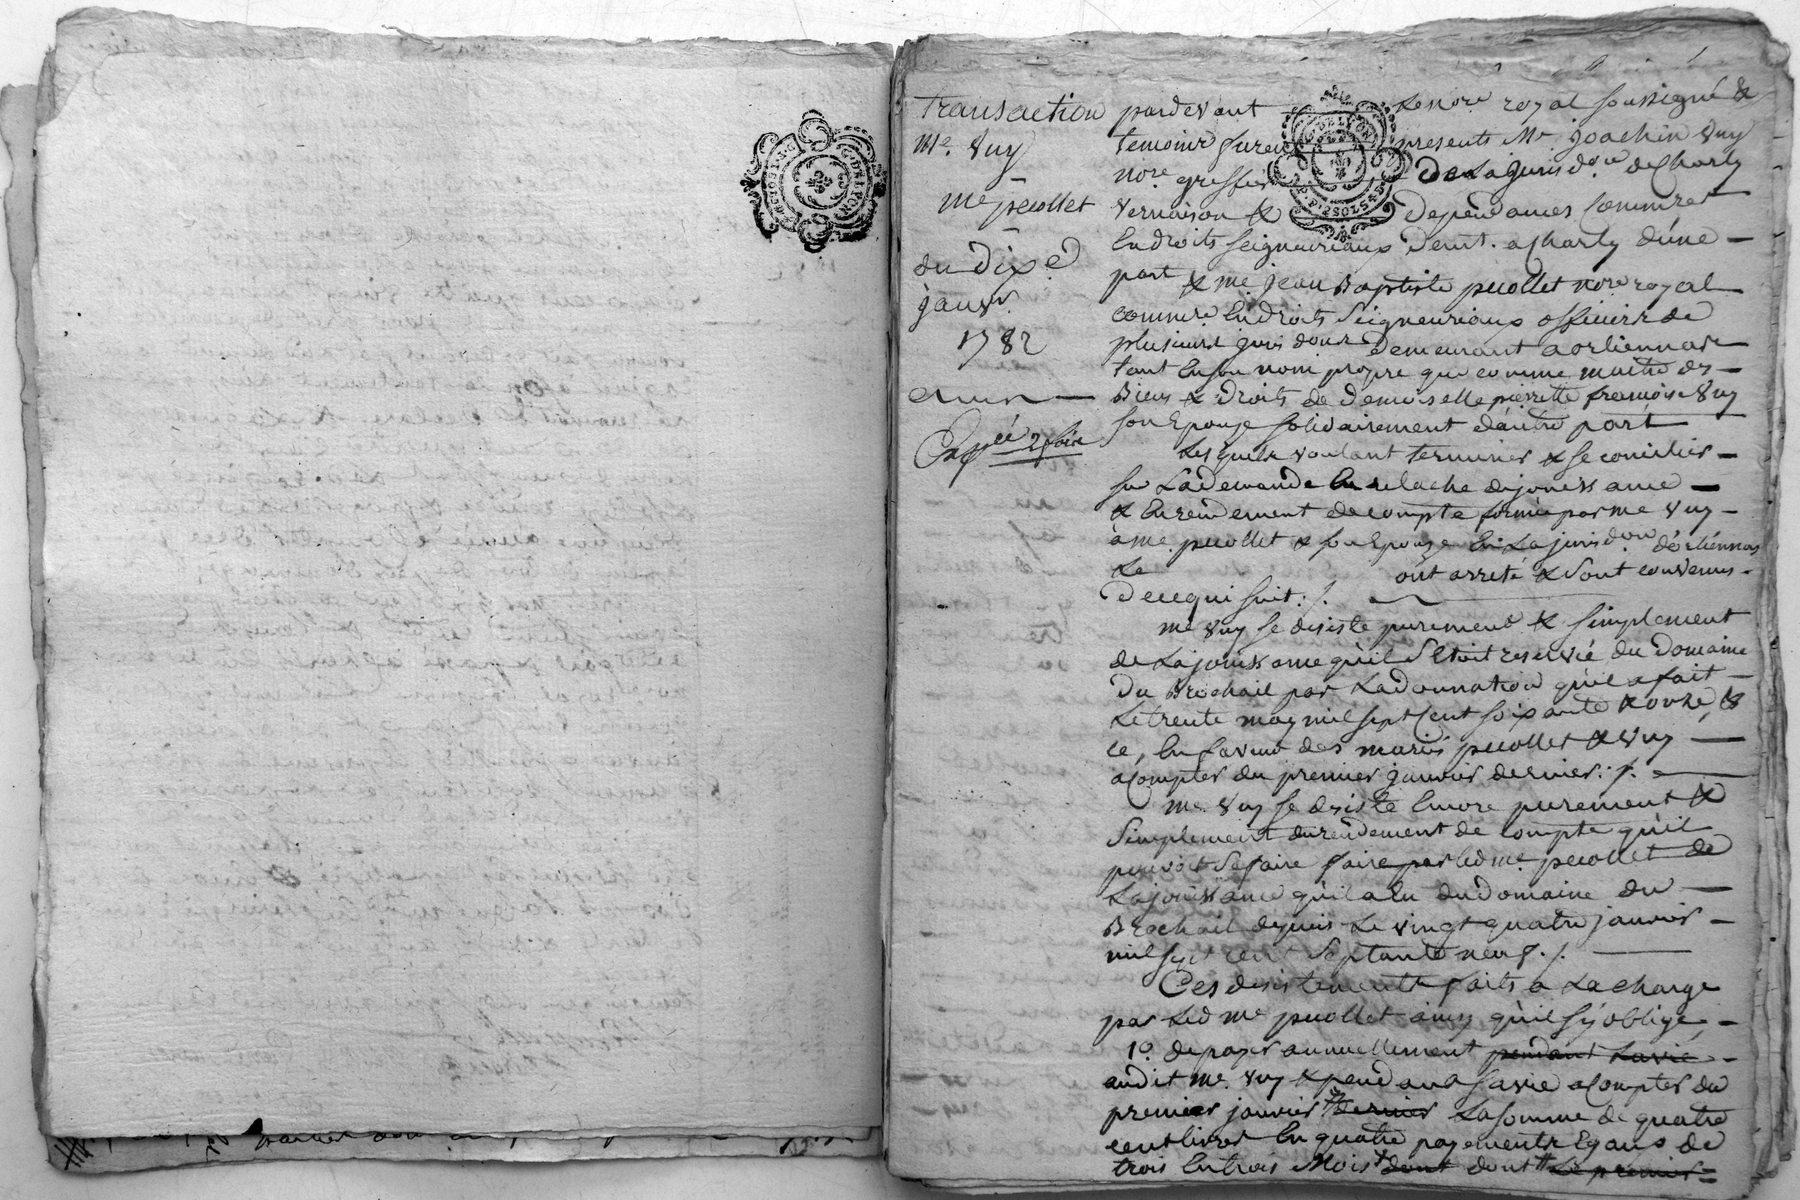 transaction
Me. Vuy
Me pecollet
du dix
janvr.
1782
pardevant Le nore royal soussigné &
temoins furen presents Me joachin Vuy
nore greffier De La jurisd.on de Charly
vernaison & Dependances Commre
En droits seigneuriaux demt. a Charly d'une
part & me jean Baptiste pecollet nore royal
commre. En droits Seigneuriaux officier de
plusieurs juris dons demeurant a orliennas
tant En son nom propre que comme maitre des
Biens & droits de demoiselle pierrette françoise Vuy
son Epouse solidairement d'autre part
Lesquels voulant terminer & se concilier
sur La demande En relache de jouissance
& En rendement de compte formée par me Vuy
a me. pecollet & son Epouse En La jurisdon d'orliennas
Le ont arreté & sont convenus
De ce qui suit :/.
me Vuy se desiste purement & simplement
de La jouissance qu'il S'Etoit reservée du Domaine
Du Brochail par La donnation qu'il a fait
Le trente may mil sept Cent soixante & onze, &
ce, En faveur des mariés pecollet & Vuy
a Compter du premier janvier dernier :/.
me. Vuy se desiste Encore purement &
Simplement du rendement de Compte qu'il
pouvoit se faire faire par led me. pecollet de
La jouissance qu'il a Eu du Domaine du
Brochail depuis Le vingt quatre janvier
mil sept cent Septante neuf ./.
Ces desistements faits a La charge
par Led Me pecollet ainsy qu'il s'y oblige,
1o. de payer annuellement pendant La vie
audit me. Vuy & pendant sa vie a Compter du
premier janvier dernier La somme de quatre
cent livres En quatre payements Egaux de
trois En trois Mois dont dont Le premier